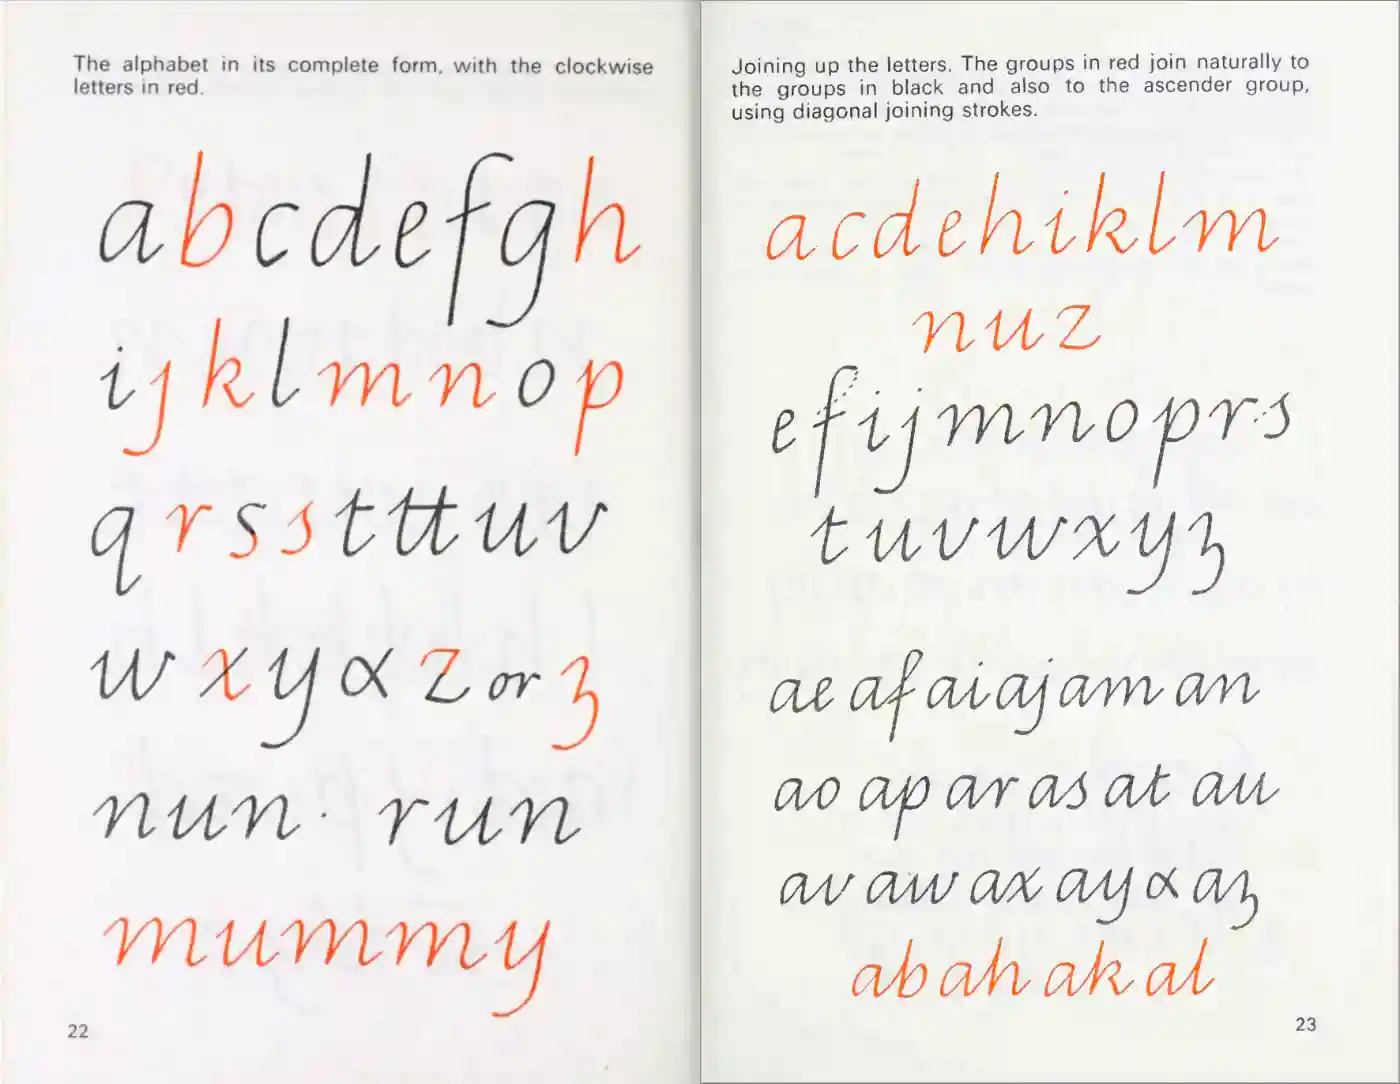 The alphabet in its complete form, with the clockwise
letters in red.
a b c d e f g h
i j k l m n o p
q r s s t tt u v
w x y x z or z
nun · run
mummy
22
Joining up the letters. The groups in red join naturally to
the groups in black and also to the ascender group,
using diagonal joining strokes.
a c d e h i k l m
n u z
e f i j m n o p r s
t u v w x y z
ae af ai aj am an
ao ap ar as at au
av aw ax ay x az
ab ah ak al
23